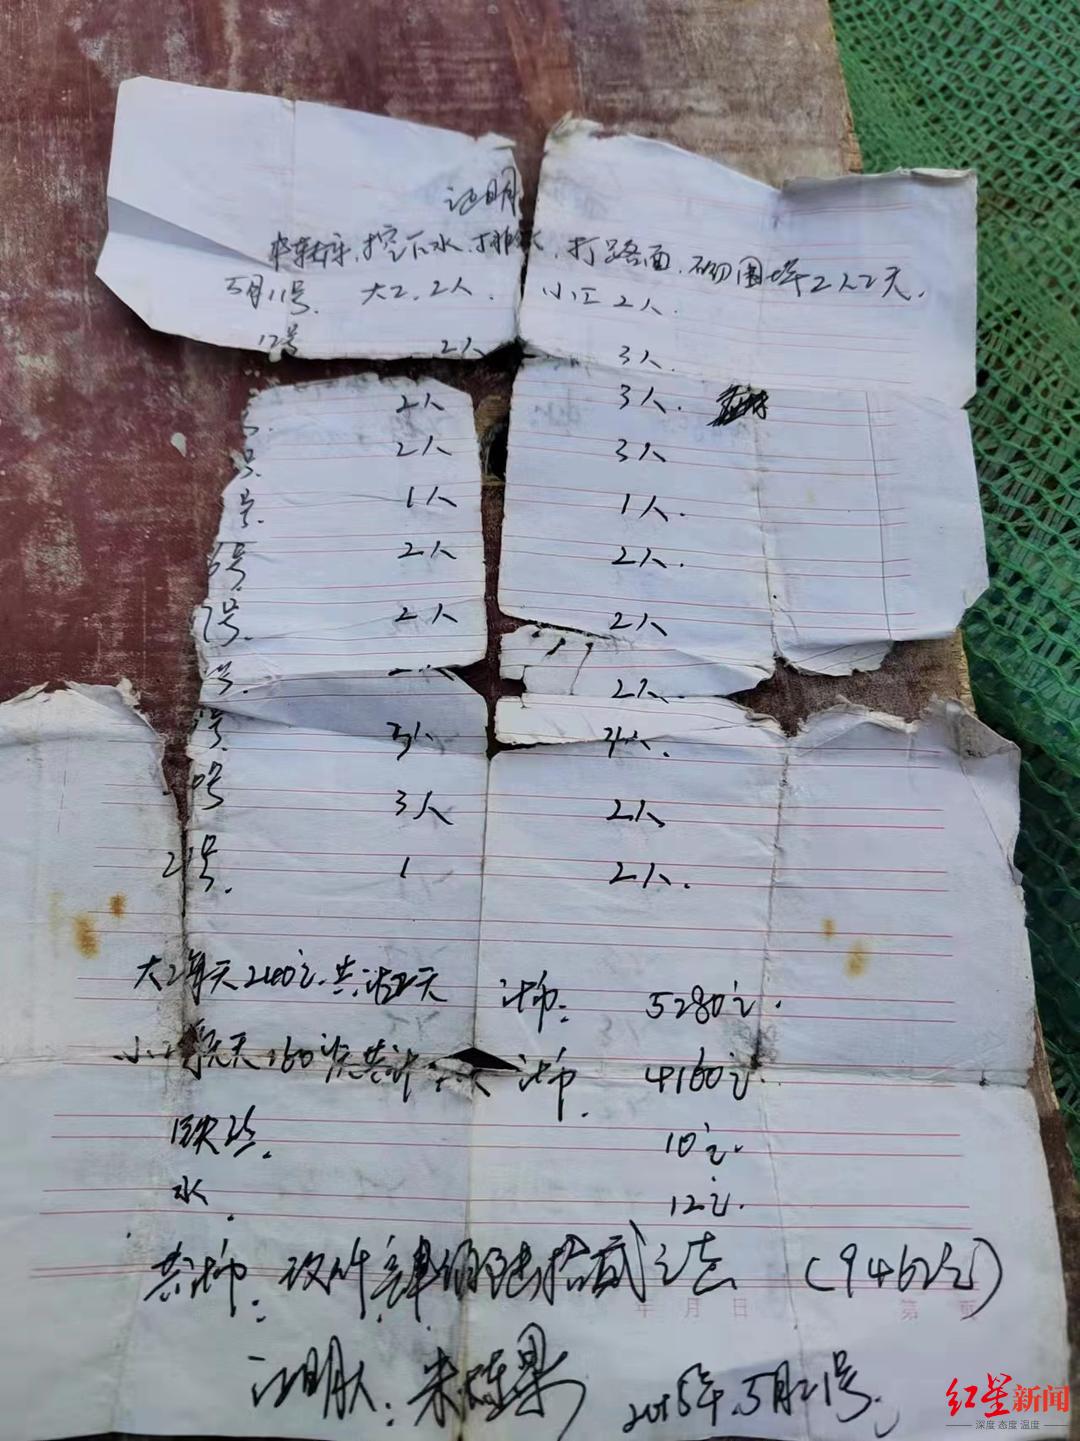 证明
挖下水,排水,打路面,砌围墙2人2天.
5月11号. 大工.2人. 小工2人.
12号 2人 3人.
2人 3人.
号. 2人 3人
号. 1人 1人.
6号. 2人 2人.
7号. 2人 2人
号. 2人.
号. 3人 4人.
0号 3人 2人
21号. 1 2人.
大工每天240元.共计 天 计币: 5280元.
小工每天160元共计 天 计币. 4160元.
铁丝. 10元.
水. 12元.
共计币: 玖仟肆佰陆拾贰元 (9462元)
年 月 日 第 页
证明人: 朱 2015年.5月21号.
红星新闻
深度 态度 温度